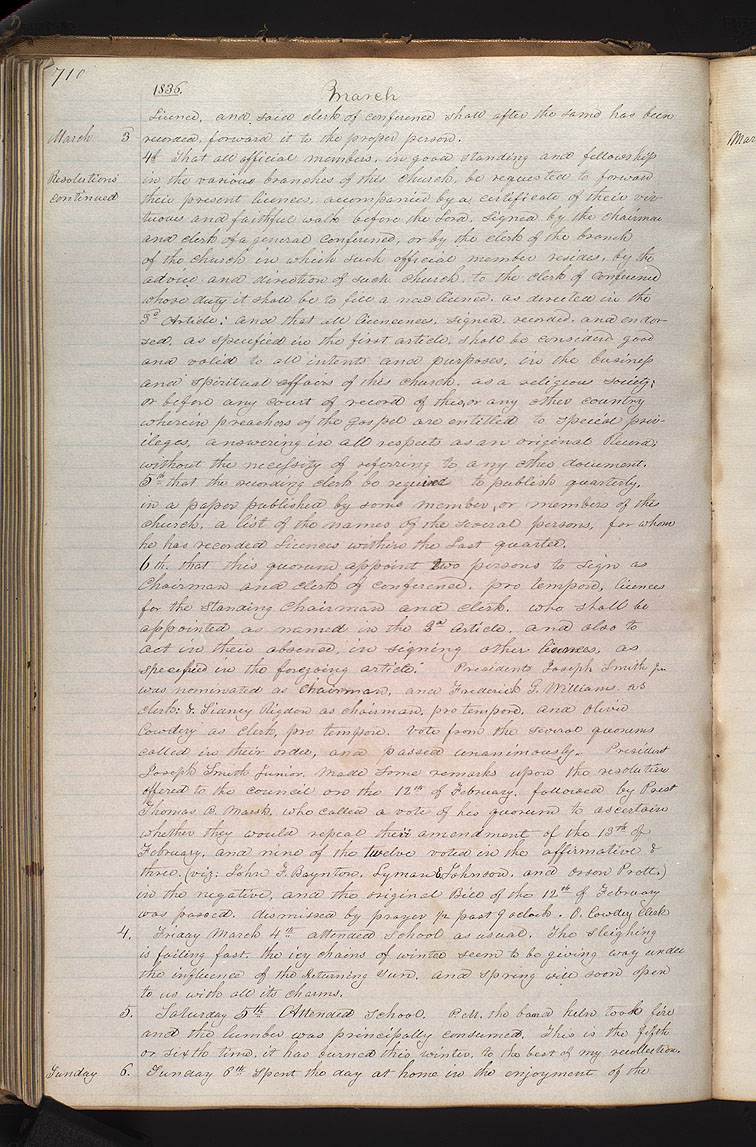 710
1836.
March
licence, and said clerk of conference shall after the same has been
March 3 recorded, forward it to the proper person.
4th That all official members, in good standing and fellowship
Resolutions in the various branches of this church, be requested to forward
continued their present licences, accompanied by a certificate of their vir-
tuous and faithful walk before the Lord, signed by the chairman
and clerk of a general conference, or by the clerk of the branch
of the church in which such official member resides, by the
advice and direction of such church, to the clerk of conference
whose duty it shall be to fill a new licence, as directed in the
3d Article: and that all licences, signed, recorded, and endor-
sed, as specified in the first article, shall be considered good
and valid to all intents and purposes, in the business
and spiritual affairs of this church, as a religious society;
or before any court of record of this, or any other country
wherein preachers of the gospel are entitled to special priv-
ileges, answering in all respects as an original Record;
without the necessity of refering to any other document.
5th that the recording clerk be required to publish quarterly,
in a paper published by some member, or members of this
church, a list of the names of the several persons, for whom
he has recorded licences within the last quarter.
6th. that this quorum appoint two persons to sign as
Chairman and clerk of conference, pro tempore, licences
for the standing Chairman and clerk, who shall be
appointed as named in the 2d Article, and also to
act in their absence, in signing other licences, as
specified in the foregoing article." Presidents Joseph Smith jr.
was nominated as chairman, and Frederick G. Williams, as
clerk: & Sidney Rigdon as chairman, pro tempore, and Oliver
Cowdery as clerk, pro tempore. Vote from the several quorums
called in their order, and passed unanimously. President
Joseph Smith Junior, made some remarks upon the resolution
offered to the council on the 12th of February, followed by Prest
Thomas B. Marsh, who called a vote of his quorum to ascertain
whether they would repeal their amendment of the 13th of
February, and nine of the twelve voted in the affirmative &
three, (viz: John F. Boynton, Lyman E. Johnson, and Orson Pratt,)
in the negative, and the original Bill of the 12th of February
was passed. dismissed by prayer ½ past 9 oclock. O. Cowdery Clerk
4. Friday March 4th attended School as usual. The sleighing
is failing fast, the icy chains of winter seem to be giving way under
the influence of the returning sun, and spring will soon open
to us with all its charms.
5. Saturday 5th Attended School. P.M. the board kiln took fire
and the lumber was principally consumed. This is the fifth
or sixth time, it has burned this winter, to the best of my recollection.
Sunday 6. Sunday 6th Spent the day at home in the enjoyment of the
Mar